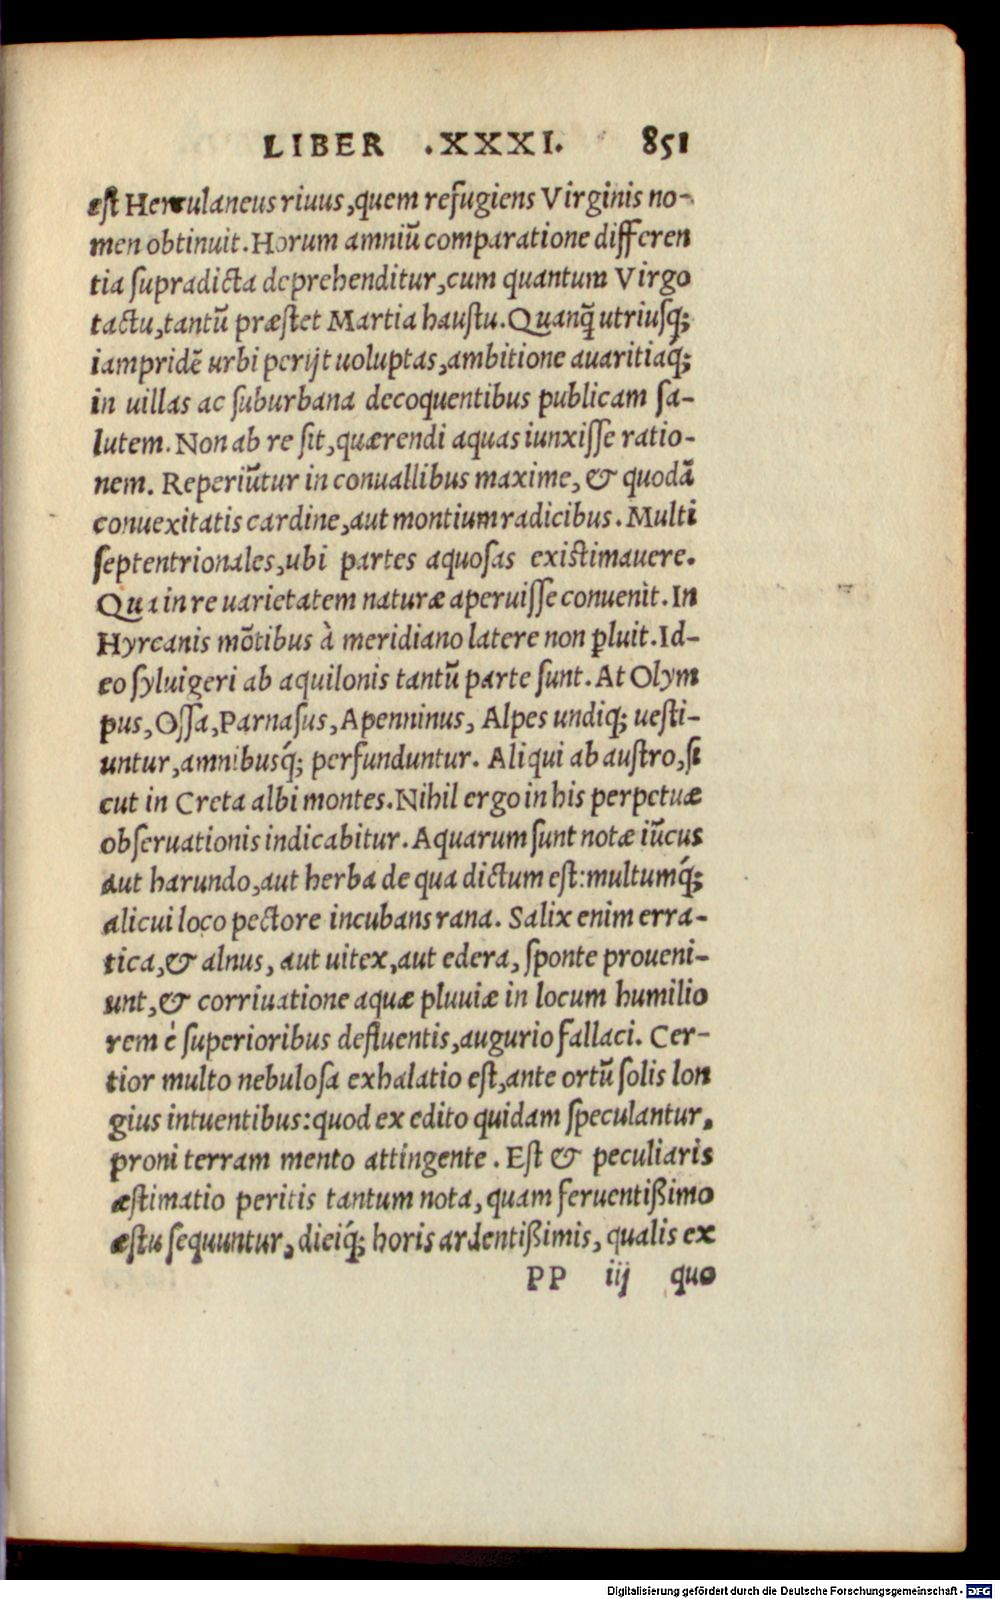 LIBER .XXXI. 851
est Herculaneus riuus, quem refugiens Virginis no-
men obtinuit. Horum amniũ comparatione differen
tia supradicta deprehenditur, cum quantum Virgo
tactu, tantũ præstet Martia haustu. Quanq̃ utriusq;
iampridẽ urbi perijt uoluptas, ambitione auaritiaq;
in uillas ac suburbana decoquentibus publicam sa-
lutem. Non ab re sit, quærendi aquas iunxisse ratio-
nem. Reperiũtur in conuallibus maxime, & quodã
conuexitatis cardine, aut montium radicibus. Multi
septentrionales, ubi partes aquosas existimauere.
Qua in re uarietatem naturæ aperuisse conuenit. In
Hyrcanis mõtibus à meridiano latere non ꝑluit. Id-
eo syluigeri ab aquilonis tantũ parte sunt. At Olym
pus, Ossa, Parnasus, Apenninus, Alpes undiq; uesti-
untur, amnibusq́; perfunduntur. Aliqui ab austro, si
cut in Creta albi montes. Nihil ergo in his perpetuæ
obseruationis indicabitur. Aquarum sunt notæ iũcus
aut harundo, aut herba de qua dictum est: multumq́;
alicui loco pectore incubans rana. Salix enim erra-
tica, & alnus, aut uitex, aut edera, sponte proueni-
unt, & corriuatione aquæ pluuiæ in locum humilio
rem è superioribus defluentis, augurio fallaci. Cer-
tior multo nebulosa exhalatio est, ante ortũ solis lon
gius intuentibus: quod ex edito quidam speculantur,
proni terram mento attingente. Est & peculiaris
æstimatio peritis tantum nota, quam feruentißimo
æstu sequuntur, dieiq́; horis ardentißimis, qualis ex
PP iij quo
Digitalisierung gefördert durch die Deutsche Forschungsgemeinschaft - DFG